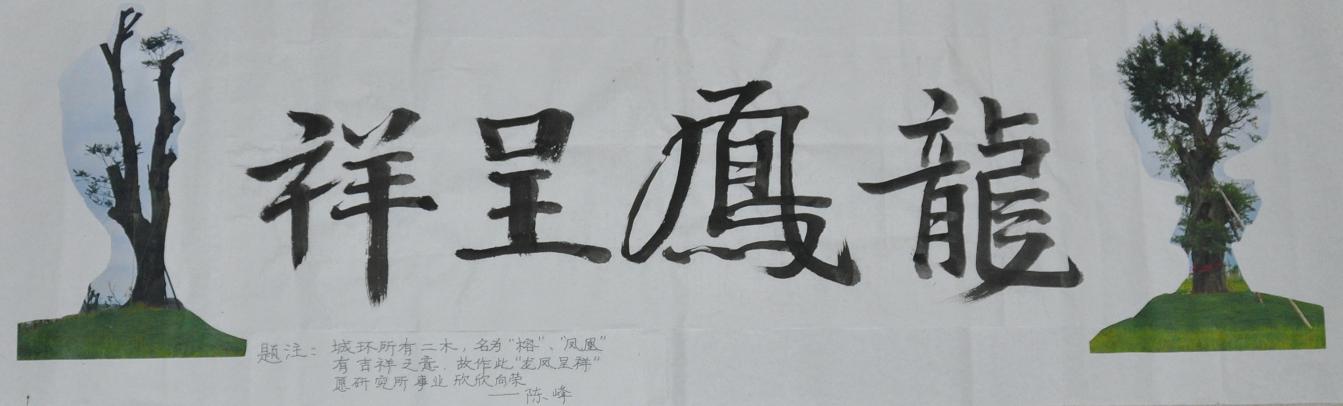 龍鳳呈祥
题注：城环所有二木，名为“榕”、“凤凰”
有吉祥之意．故作此“龙凤呈祥”
愿研究所事业欣欣向荣
——陈峰